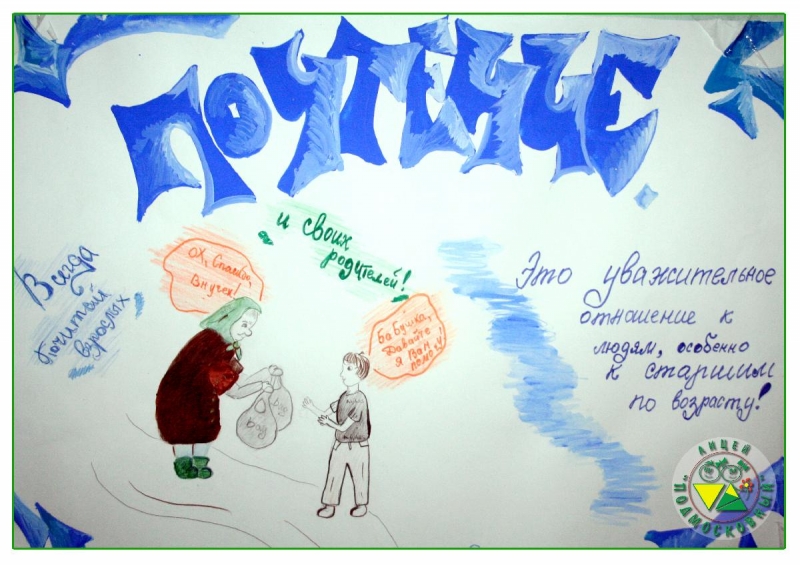 ПОЧТЕНИЕ.
Всегда
Почитай
взрослых
и своих
родителей!
Ох, Спасибо,
Внучек!
Бабушка,
Давайте
я Вам
помогу!
Bag
Это уважительное
отношение к
людям, особенно
к старшим
по возрасту!
ЛИЦЕЙ
"ПОДМОСКОВНЫЙ"